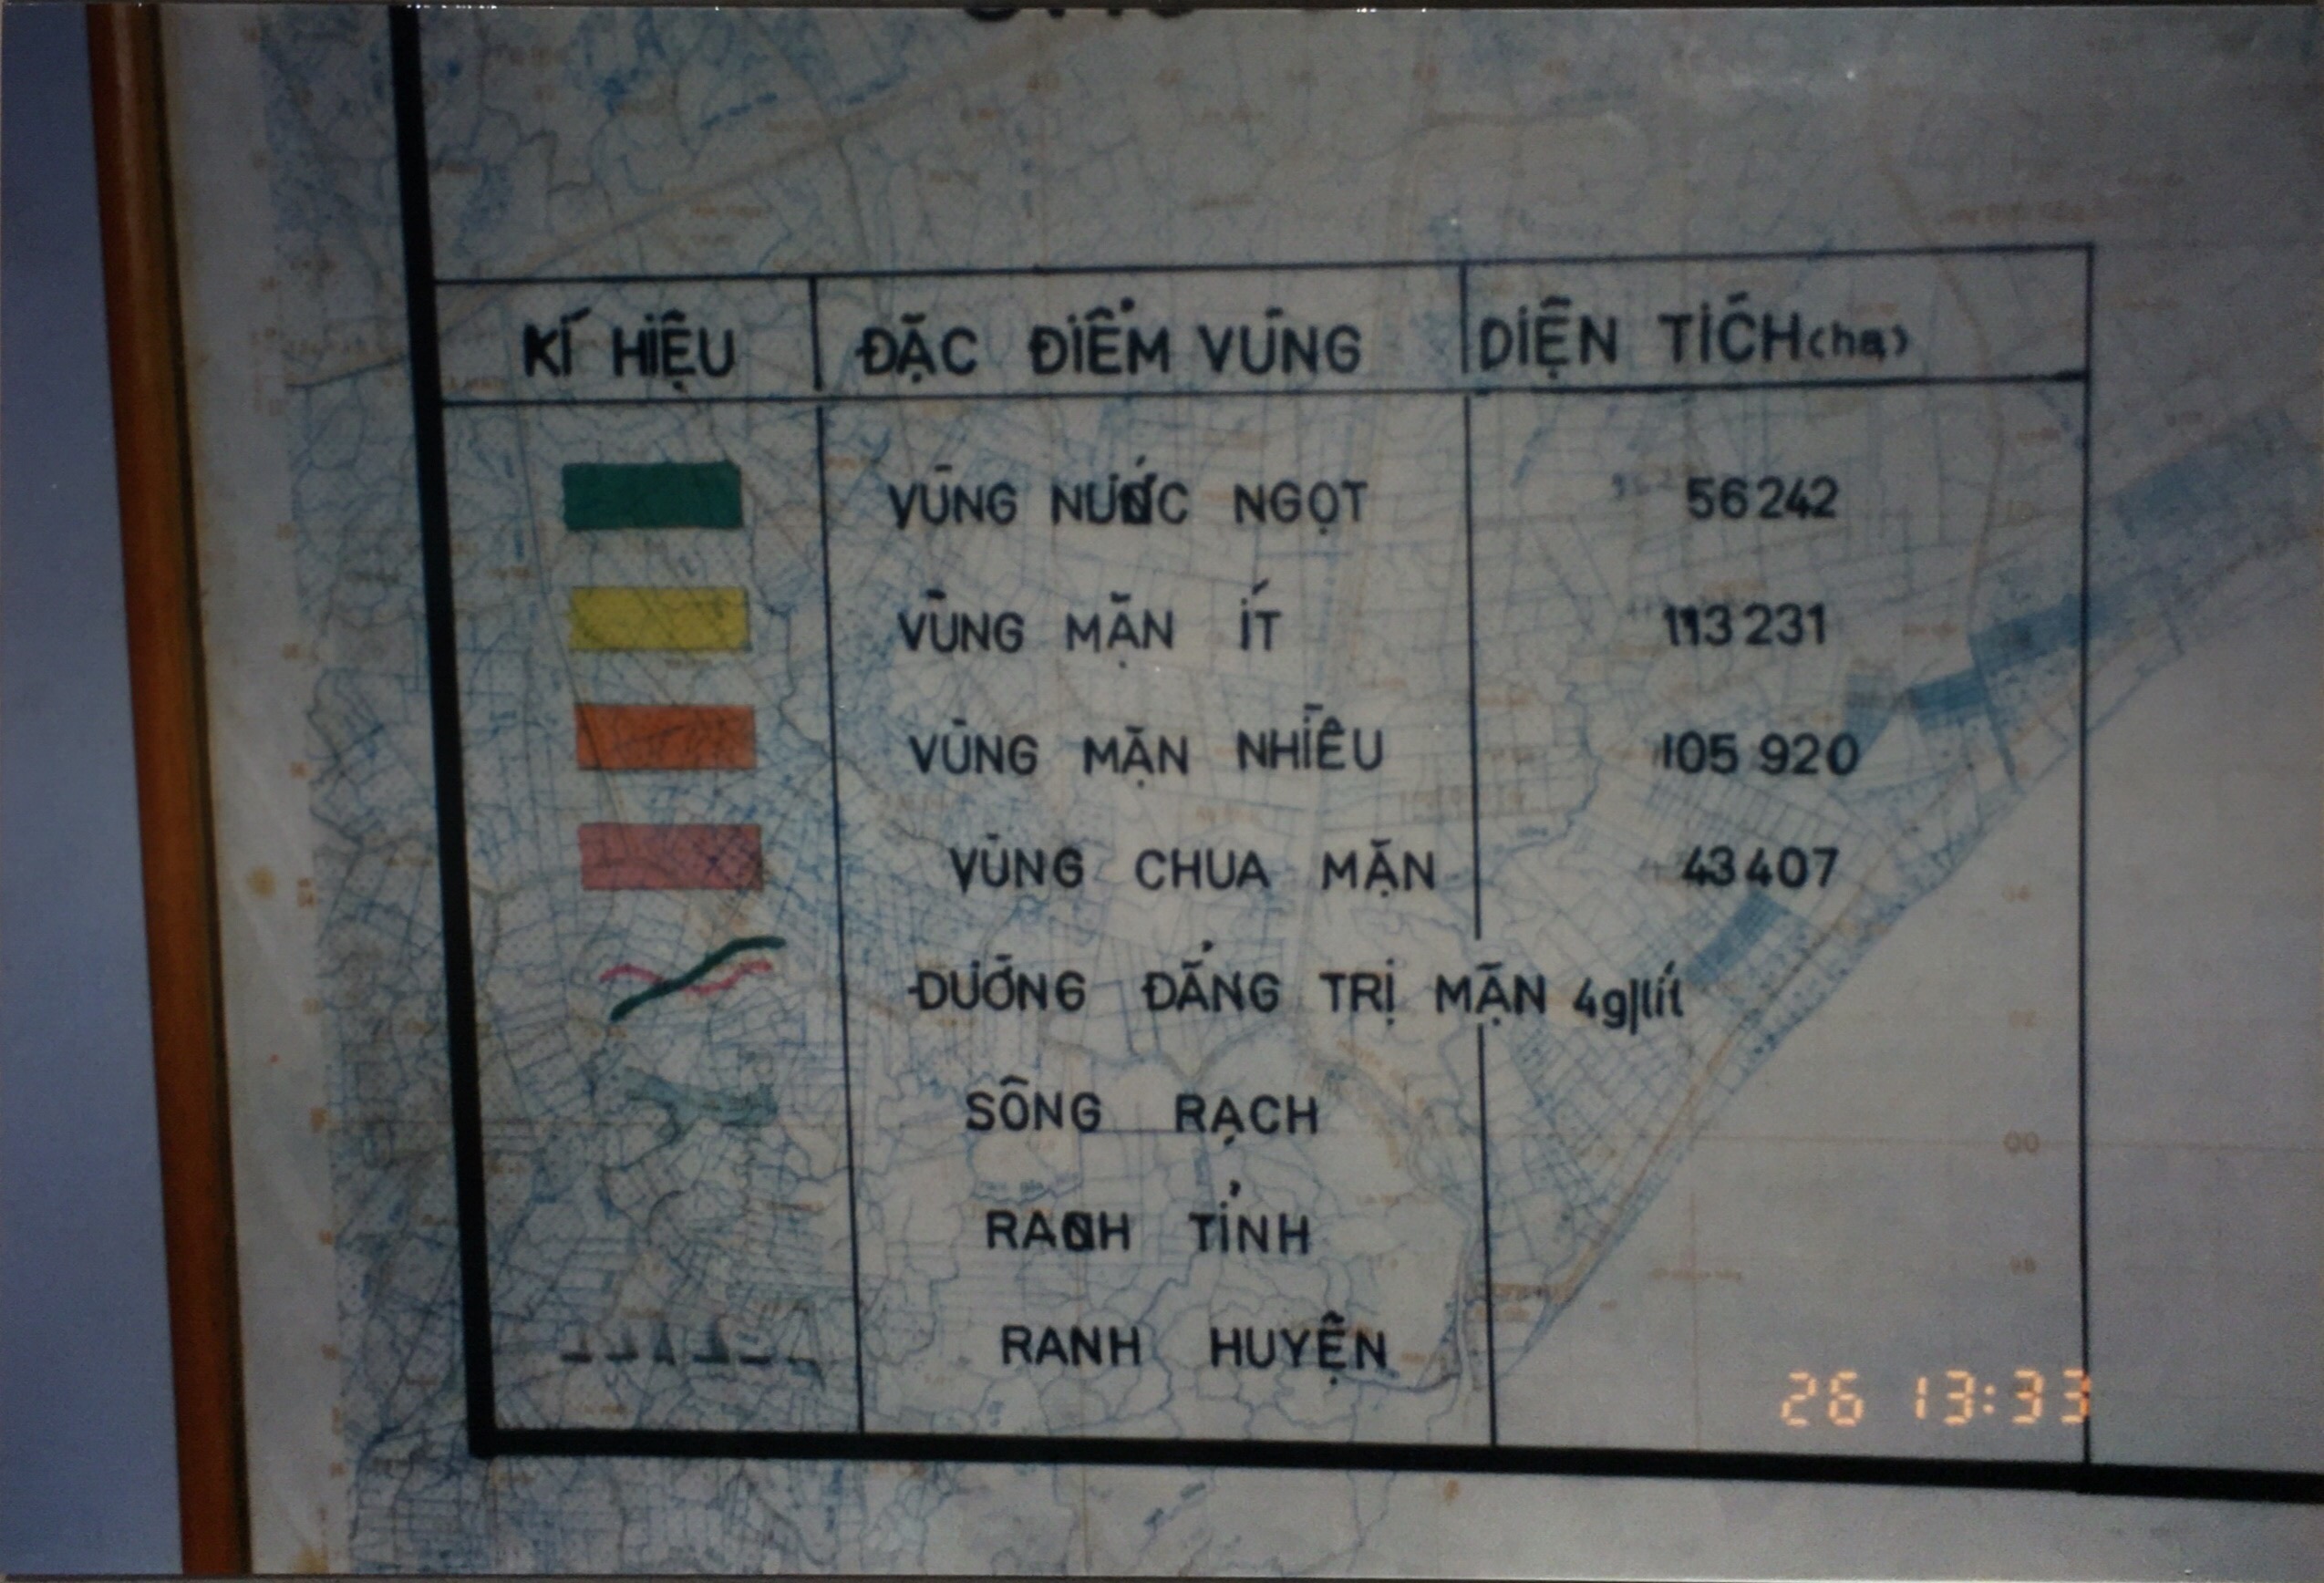 KÍ HIỆU ĐẶC ĐIỂM VÙNG DIỆN TÍCH(ha)
VÙNG NƯỚC NGỌT 56242
VÙNG MẶN ÍT 113231
VÙNG MẶN NHIỀU 105 920
VÙNG CHUA MẶN 43407
ĐƯỜNG ĐẲNG TRỊ MẶN 4g/lít
SÔNG RẠCH
RANH TỈNH
RANH HUYỆN
26 13:33